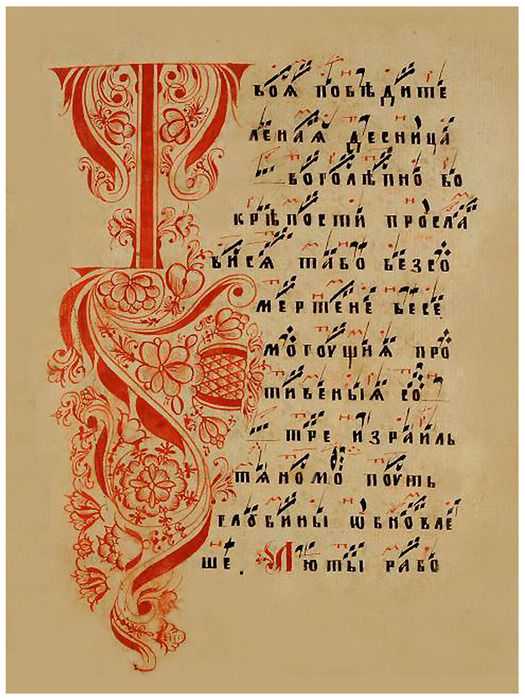 Твоѧ побѣдите
леная десница
боголѣпно во
крѣпости просла
вися табо безсо
мертене весе
могоущия про
тивеныя со
тре израиль
тяномо поуть
глобины ѡбновле
ше. Люты рабо